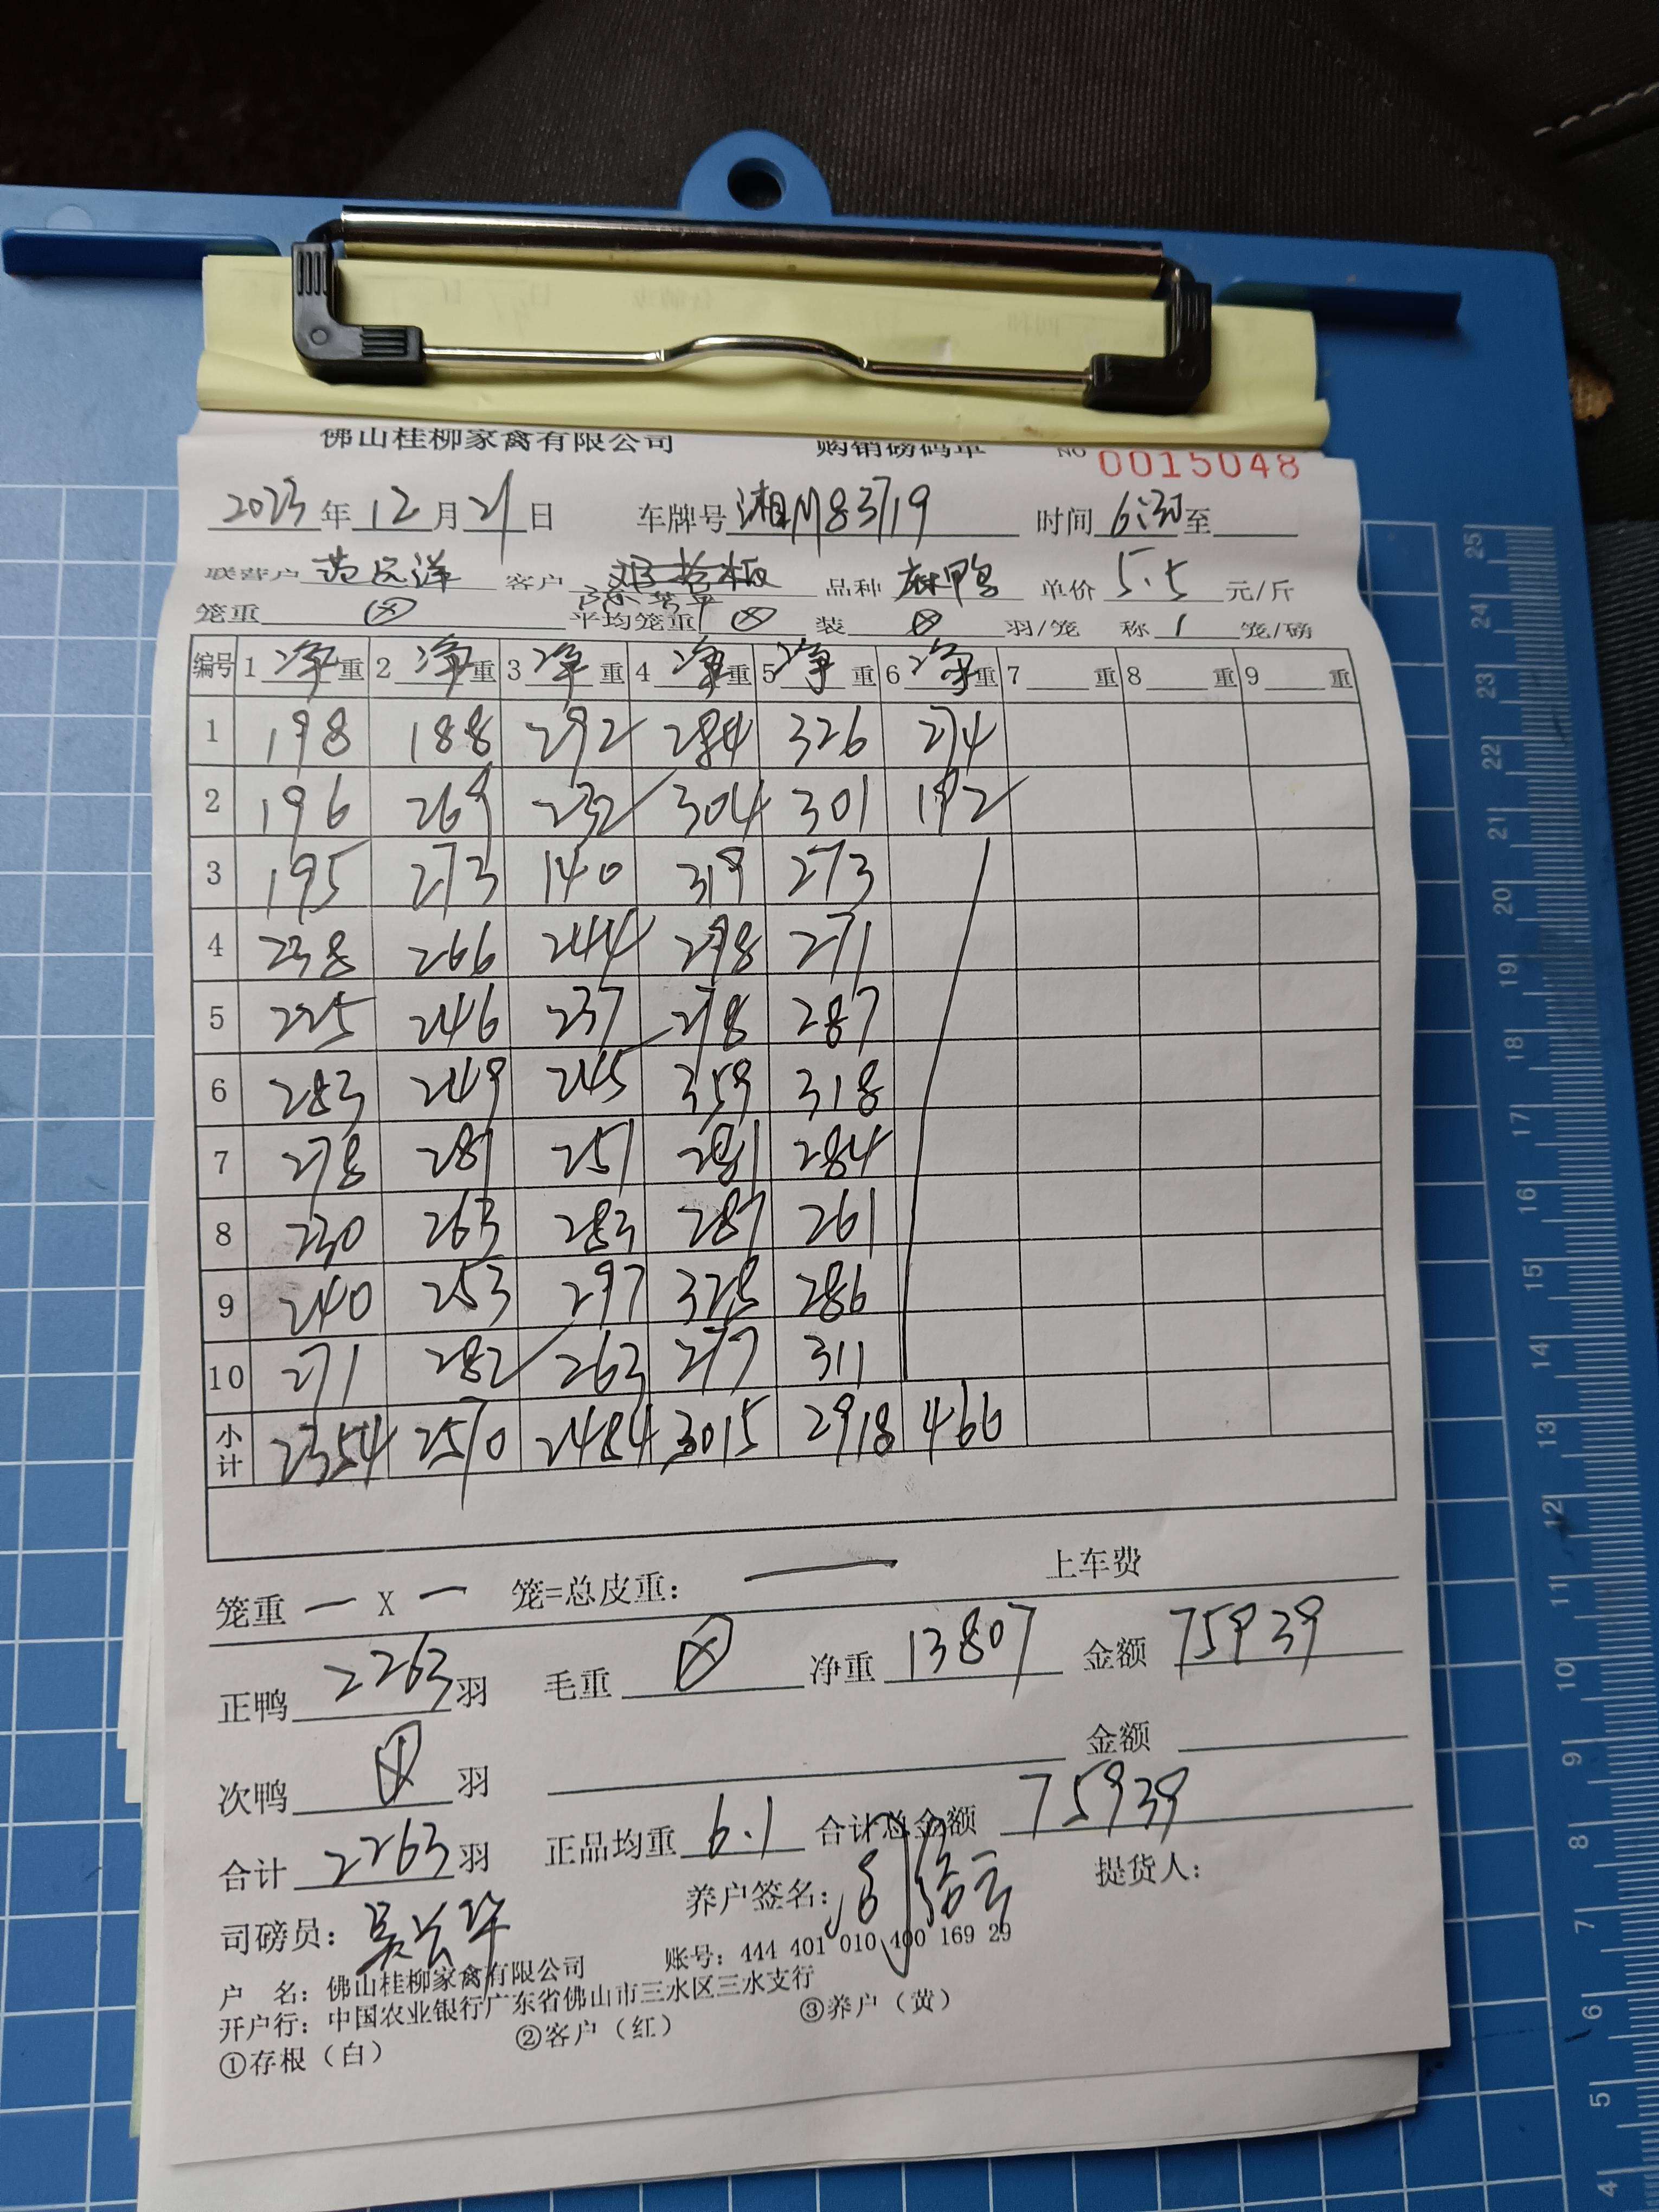 佛山桂柳家禽有限公司 购销磅码单 NO 0015048
2023年12月21日 车牌号 湘M83719 时间 6:30至
联营户 客户 品种 麻鸭 单价 5.5 元/斤
笼重 平均笼重 装 羽/笼 称 1 笼/磅
编号 1 净重 2 净重 3 净重 4 净重 5 净重 6 净重 7 重 8 重 9 重
1 198 188 292 284 326 274
2 196 269 232 304 301 192
3 195 273 140 319 273
4 238 266 244 298 271
5 225 246 237 278 287
6 283 249 245 359 318
7 278 281 251 281 284
8 230 263 283 287 261
9 240 253 297 328 286
10 271 282 263 277 311
小计 2354 2570 2484 3015 2918 466
笼重 — X — 笼=总皮重: — 上车费
正鸭 2263 羽 毛重 净重 13807 金额 75939
次鸭 羽 金额
合计 2263 羽 正品均重 6.1 合计总金额 75939
司磅员: 养户签名: 提货人:
户 名: 佛山桂柳家禽有限公司 账号: 444 401 010 400 169 29
开户行: 中国农业银行广东省佛山市三水区三水支行
①存根（白） ②客户（红） ③养户（黄）
25
24
23
22
21
20
19
18
17
16
15
14
13
12
11
10
9
8
7
6
5
4